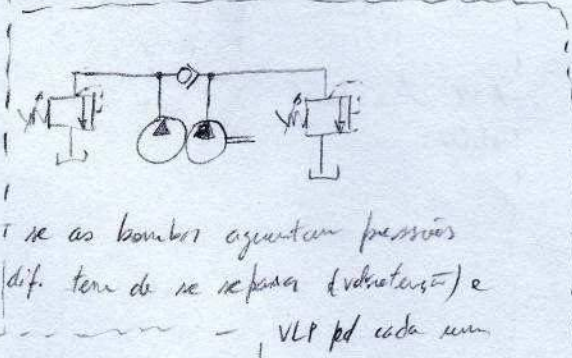 se as bombas aguentam pressões
dif. tem de se separar (valv retenção) e
VLP pd cada uma